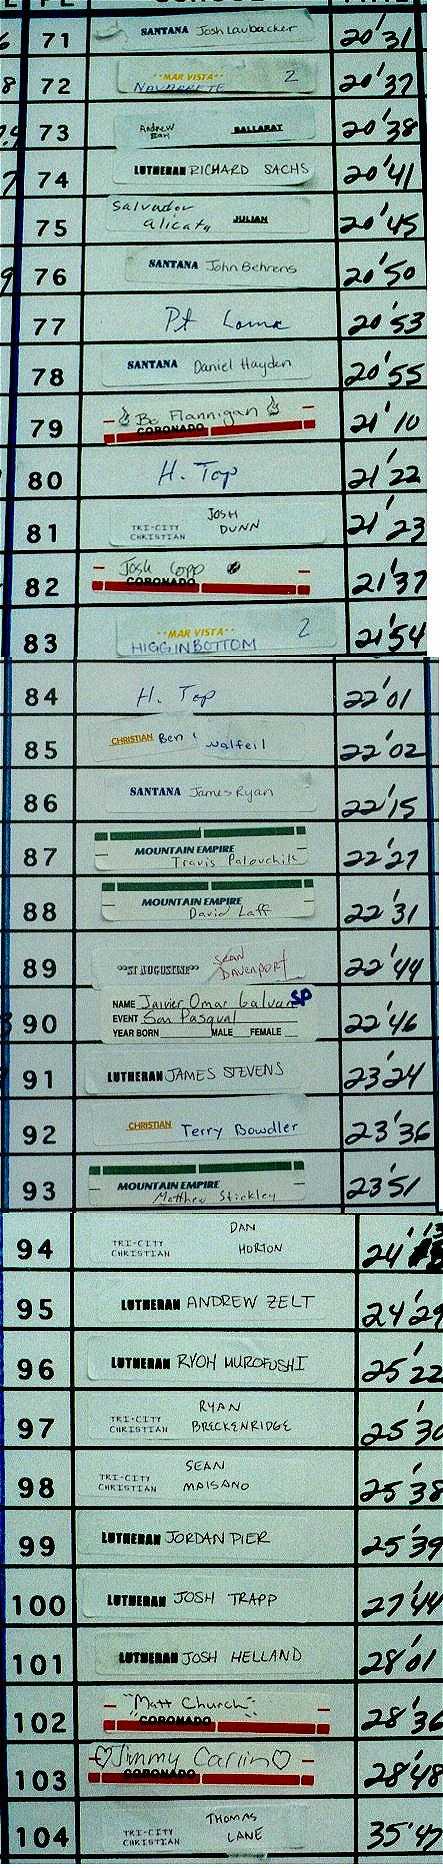 71 SANTANA Josh Laubacker 20'31
72 MAR VISTA NAVARRETE 2 20'37
73 Andrew BALLARAT 20'38
74 LUTHERAN RICHARD SACHS 20'41
75 Salvador Alicata JULIAN 20'45
76 SANTANA John Behrens 20'50
77 Pt Loma 20'53
78 SANTANA Daniel Hayden 20'55
79 Bo Flannigan CORONADO 21'10
80 H. Top 21'22
81 TRI-CITY CHRISTIAN JOSH DUNN 21'23
82 Josh Copp CORONADO 21'37
83 MAR VISTA HIGGINBOTTOM 2 21'54
84 H. Top 22'01
85 CHRISTIAN Ben Walfeil 22'02
86 SANTANA James Ryan 22'15
87 MOUNTAIN EMPIRE Travis 22'27
88 MOUNTAIN EMPIRE David Laff 22'31
89 "ST AUGUSTINE" SEAN DAVENPORT 22'44
90 NAME Javier Omar Galvan SP
EVENT San Pasqual 22'46
YEAR BORN MALE FEMALE
91 LUTHERAN JAMES STEVENS 23'24
92 CHRISTIAN Terry Bowdler 23'36
93 MOUNTAIN EMPIRE Matthew Stickley 23'51
94 TRI-CITY CHRISTIAN DAN HORTON 24'13
95 LUTHERAN ANDREW ZELT 24'29
96 LUTHERAN RYOH MUROFUSHI 25'22
97 TRI-CITY CHRISTIAN RYAN BRECKENRIDGE 25'30
98 TRI-CITY CHRISTIAN SEAN MAISANO 25'38
99 LUTHERAN JORDAN PIER 25'39
100 LUTHERAN JOSH TRAPP 27'44
101 LUTHERAN JOSH HELLAND 28'01
102 "Matt Church" CORONADO 28'36
103 Jimmy Carlin CORONADO 28'48
104 TRI-CITY CHRISTIAN THOMAS LANE 35'47